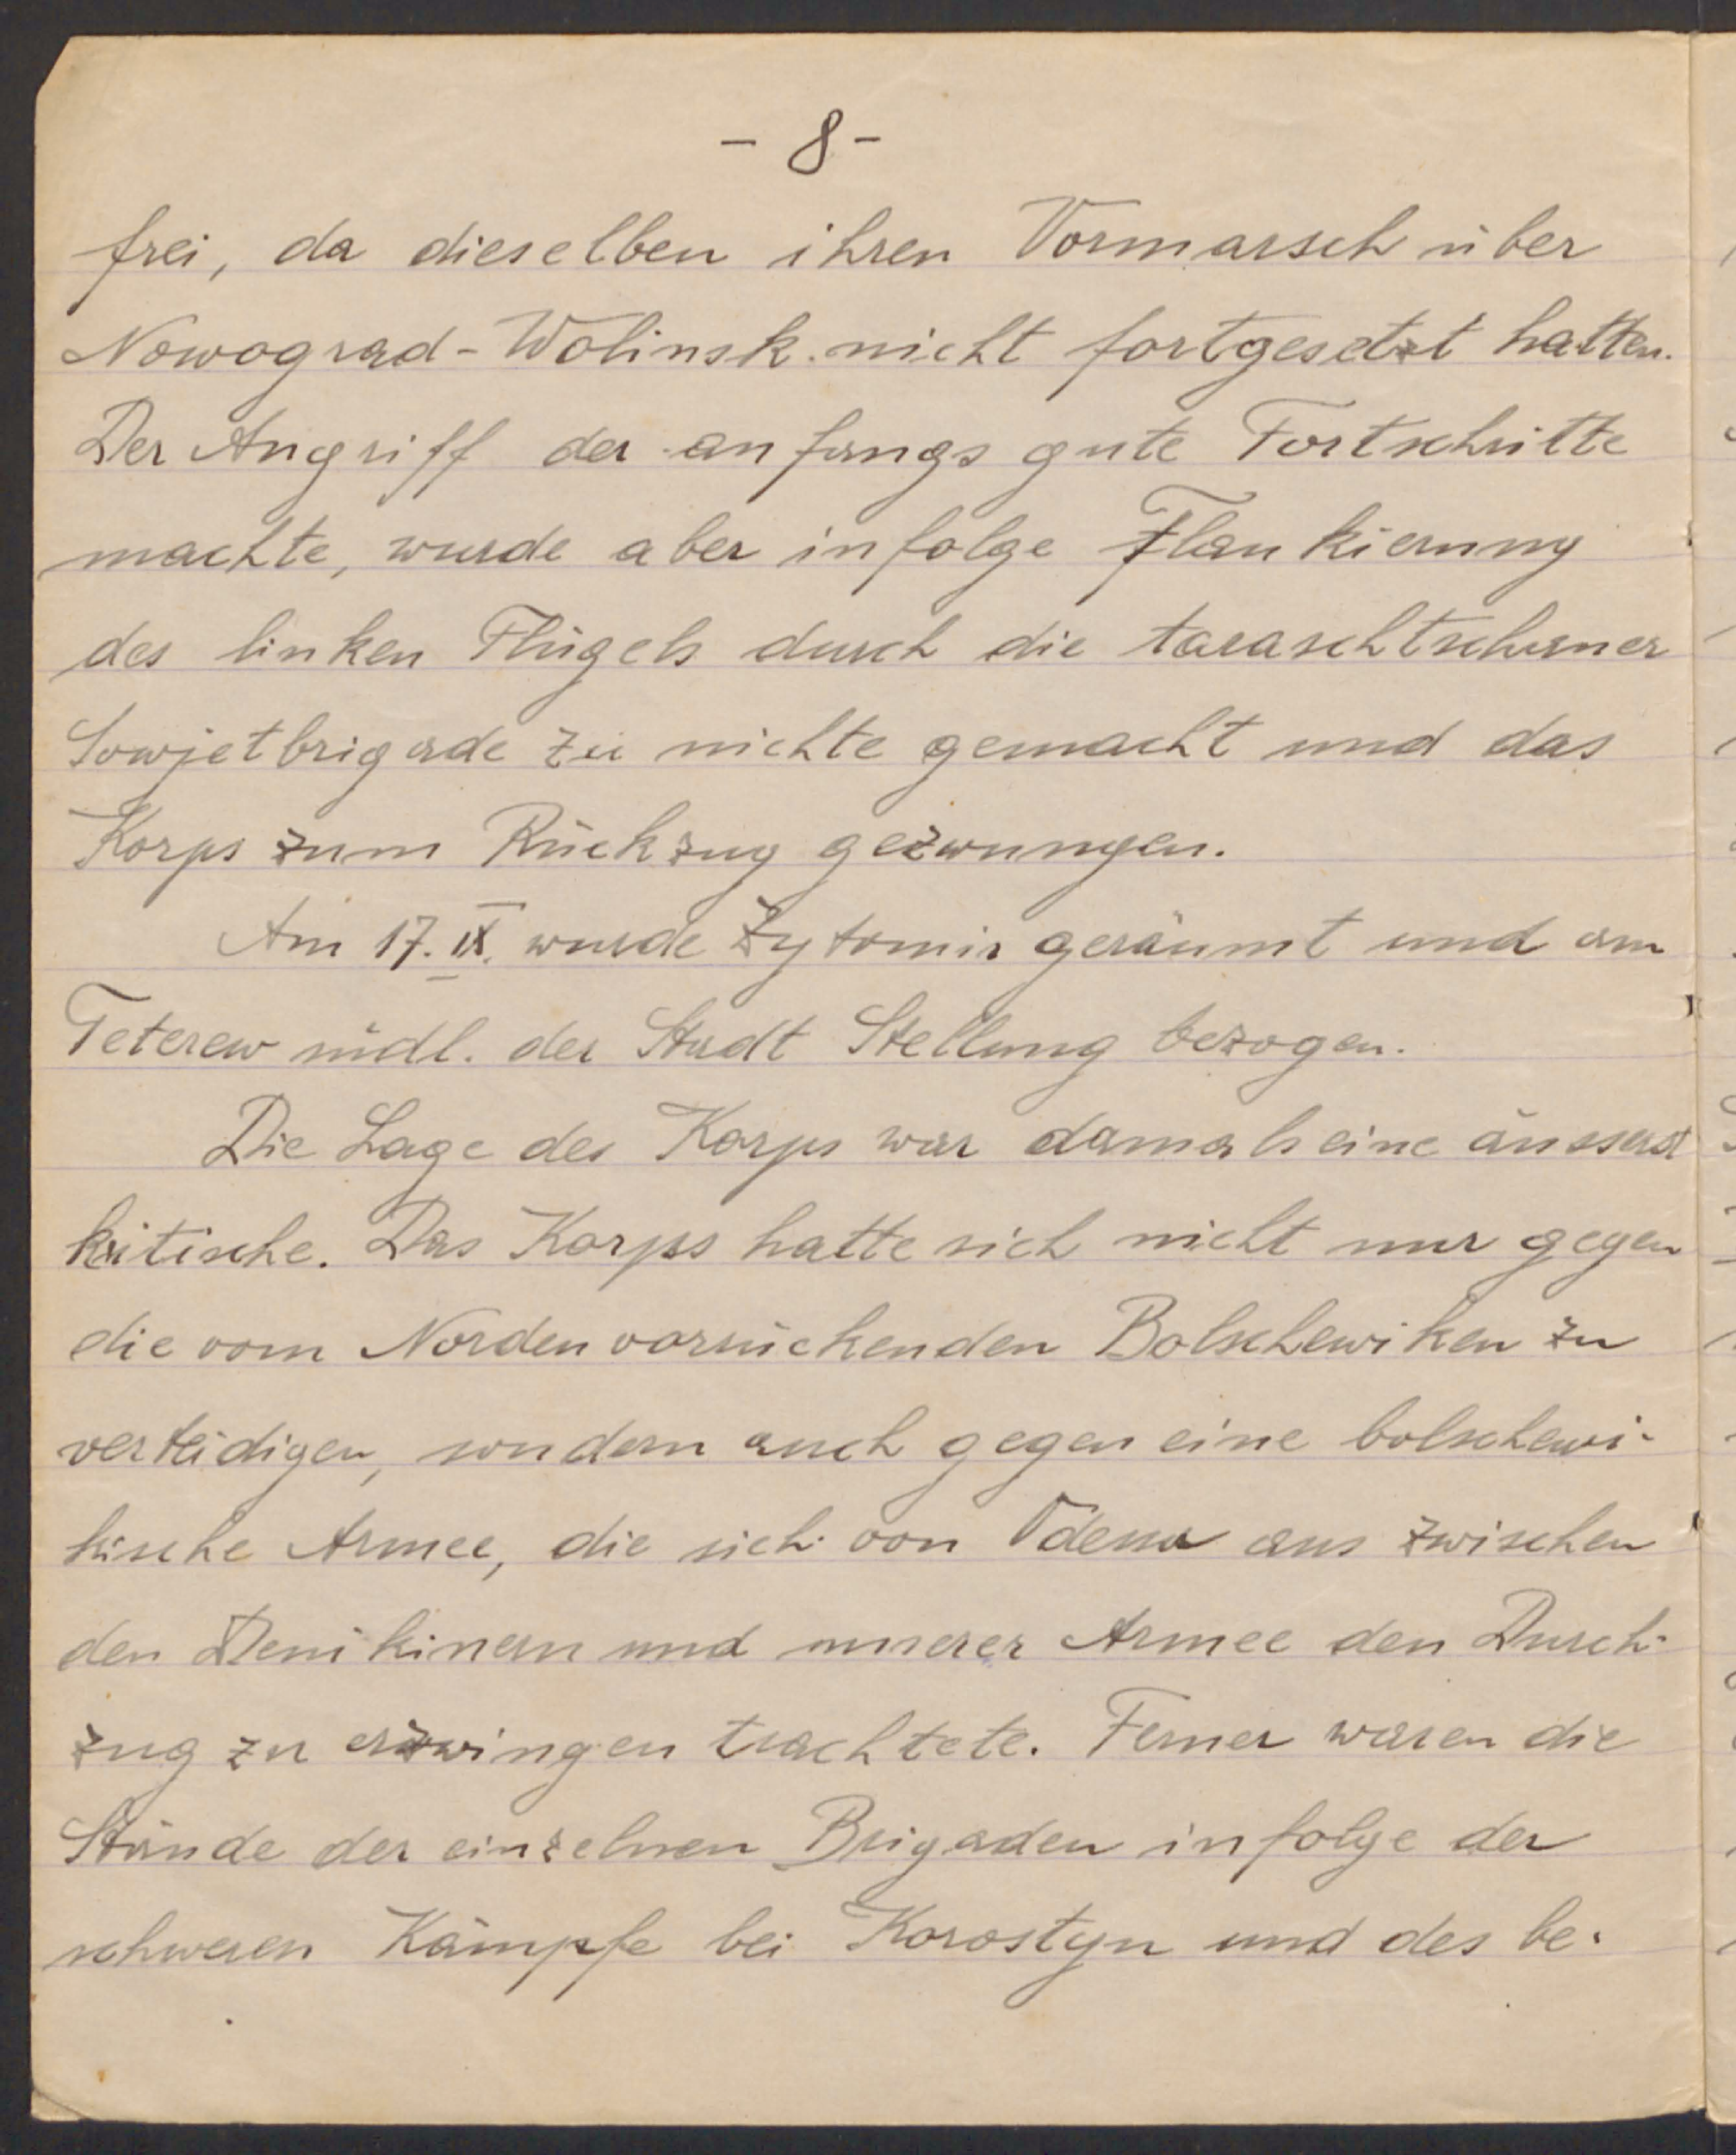 - 8 -
frei, da dieselben ihren Vormarsch über
Nowograd-Wolinsk nicht fortgesetzt hatten.
Der Angriff der anfangs gute Fortschritte
machte, wurde aber infolge Flankierung
des linken Flügels durch die taraschtschaner
Sowjetbrigade zu nichte gemacht und das
Korps zum Rückzug gezwungen.
Am 17. IX. wurde Żytomir geräumt und am
Teterew südl. der Stadt Stellung bezogen.
Die Lage des Korps war damals eine äusserst
kritische. Das Korps hatte sich nicht nur gegen
die vom Norden vorrückenden Bolschewiken zu
verteidigen, sondern auch gegen eine bolschewi-
kische Armee, die sich von Odessa aus zwischen
den Denikinern und unserer Armee den Durch-
zug zu erzwingen trachtete. Ferner waren die
Stände der einzelnen Brigaden infolge der
schweren Kämpfe bei Korostyn und des be-